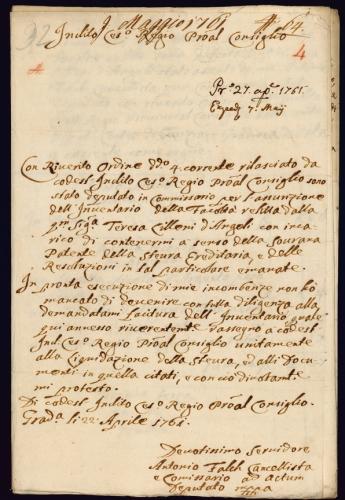 Maggio 1761
64.
92
Inclito Ces.º Regio Prõal Consiglio
4
4
Pr.º 27. ap.e 1761.
Exped. 7.ª Maij
Con Riverito Ordine ddº 4. corrente rilasciato da
codest' Inclito Ces.º Regio Prõal Consiglio sono
stato deputato in Commissario per l'assunzione
dell'Inventario della Facoltà relitta dalla
Sig.ra Teresa Cilleni d'Angeli con inca=
rico di contenermi a senso della Sovrana
Patente della Steura Ereditaria, e delle
Resoluzioni in tal particolare emanate.
In pronta esecuzione di mie incombenze non hò
mancato di devenire con tutta diligenza alla
demandatami facitura dell'Inventario, quale
qui annesso riverentemente rassegno a codest'
Incl. Ces.º Regio Prõal Consiglio unitamente
alla Liquidazione della Steura, ed alli Docu=
menti in quella citati, e con ciò
mi protesto.
Di codest' Inclito Ces.º Regio Prõal Consiglio.
Grada li 22. Aprile 1761.
Devotissimo Servidore
Antonio Cancellista
e Comissario ad actum
Deputato mppa